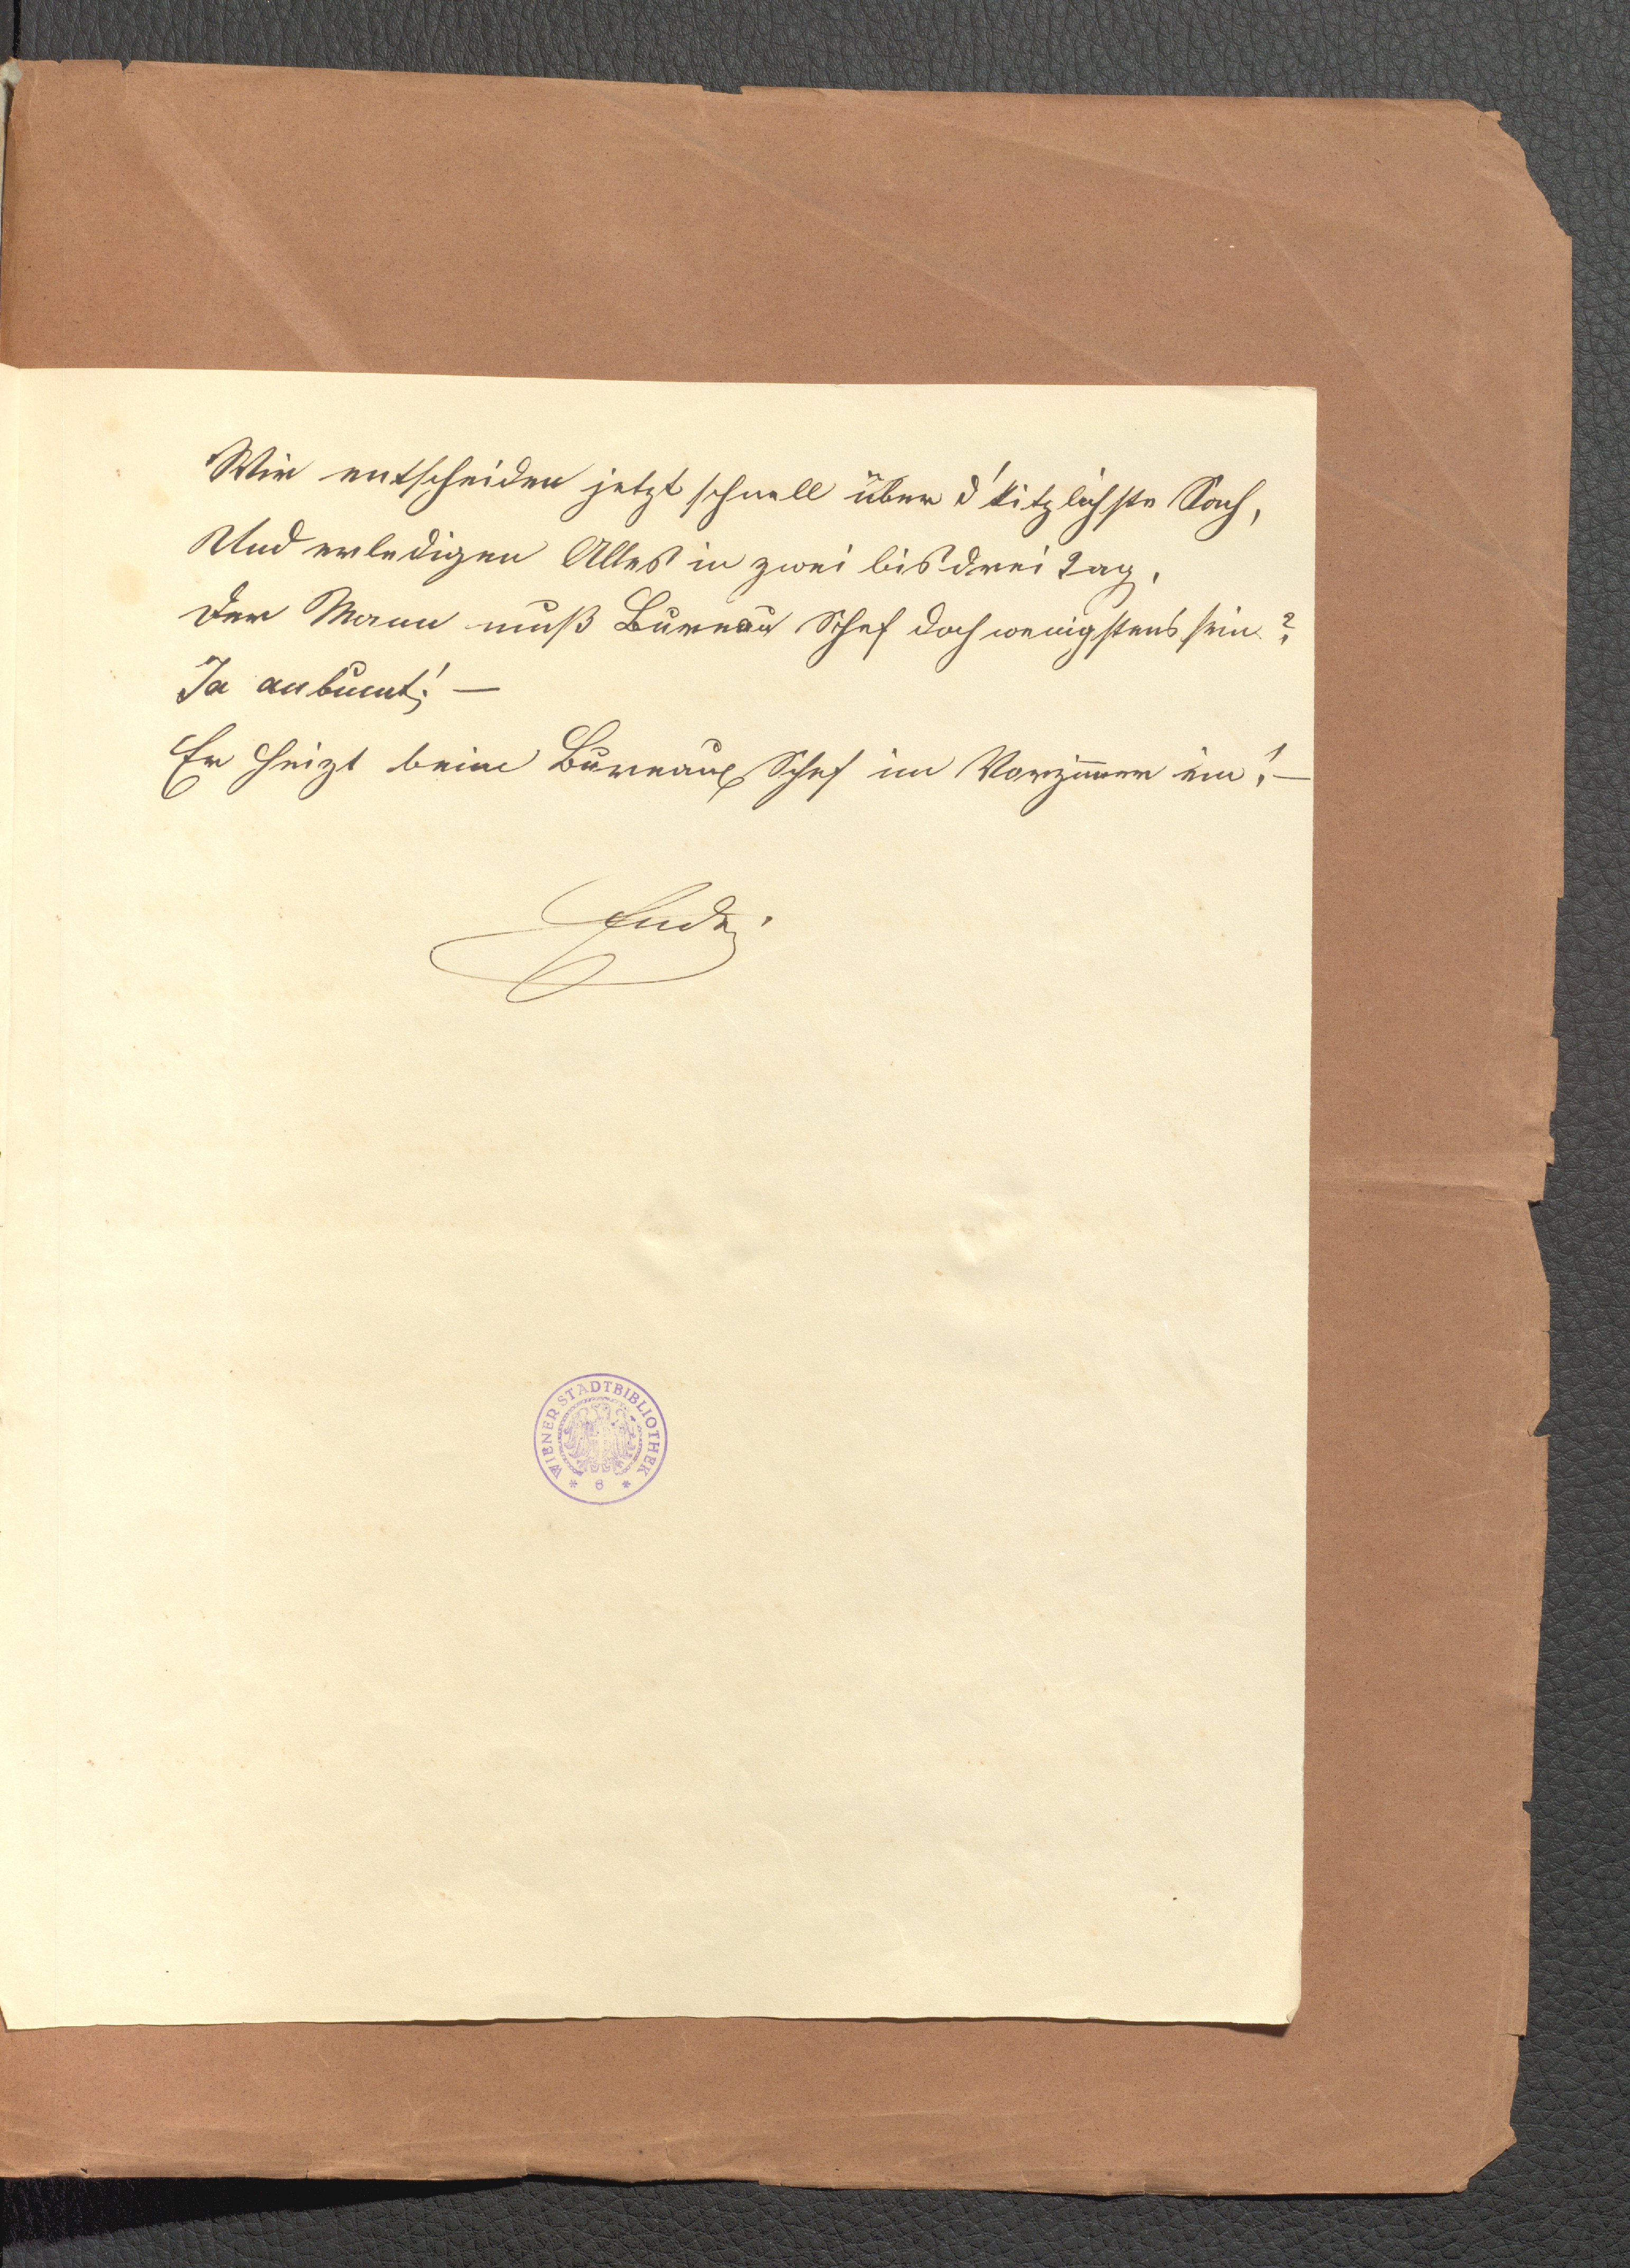 Wir entscheiden jetzt schnell über d'kitzlichste Sach,
Und erledigen Alles in zwei bis drei Tag,
Der Mann muß Bureau Schef doch wenigstens sein?
Ja anbunt! —
Er heizt beim Bureau Schef im Vorzimmer ein! —
Ende.
WIENER STADTBIBLIOTHEK
* 6 *